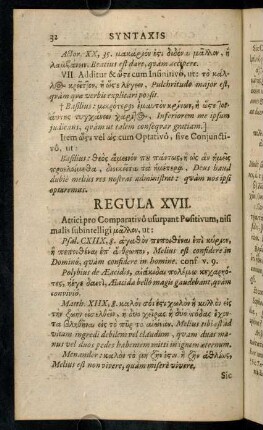 32 SYNTAXIS
Actor. XX, 35. μακάριόν ἐςι διδόναι μᾶλλον, ἢ
λαμβάνειν. Beatius est dare, quàm accipere.
VII. Additur & ὥςε cum Infinitivo, ut: τὸ κάλ-
ἢ ὥςε λέγειν, Pulchritudo major est,
quàm quæ verbis explicari possit.
† Basilius: ἐμαυτὸν κρίνων, ἢ ὥςε
τυγχάνειν Inferiorem me ipsum
judicans, quàm ut talem consequar gratiam.]
Item ὥςε vel ὡς cum Optativo, sive Conjuncti-
vo, ut:
Basilius: θεὸς ἄμεινον ἢ ὡς ἂν ἡμεῖς
τὰ ἡμέτερα. Deus haud
dubiè meliùs res nostras administrat: quàm nos ipsi
optaremus.
REGULA XVII.
Attici pro Comparativo usurpant Positivum, nisi
malis subintelligi μᾶλλον, ut:
Psal. CXIIX, 8. ἀγαθὸν πεποιθέναι ἐπὶ κύριον,
ἢ πεποιθέναι ἐπ' ἄνθρωπον, Melius est confidere in
Domino, quàm confidere in homine. conf. v. 9.
Polybius de Æacidis, αἰακίδαι πολέμῳ κεχαρηό-
τες, ἠΰτε δαιτὶ, Æacidæ bello magis gaudebant, quàm
convivio.
Matth. XIIX, 8. καλόν σοι ἐςὶν χωλὸν ἢ κυλλὸν εἰς
τὴν ζωὴν εἰσελθεῖν, ἢ δύο χεῖρας ἢ δύο πόδας ἔχον-
τα βληθῆναι εἰς τὸ πῦρ τὸ αἰώνιον. Melius tibi est ad
vitam ingredi debilem vel claudum, quàm duas ma-
nus vel duos pedes habentem mitti in ignem æternum.
Menander: καλὸν τὸ μὴ ζῆν ἐςιν ἢ ζῆν ἀθλίως,
Melius est non vivere, quàm miserè vivere.
Sic